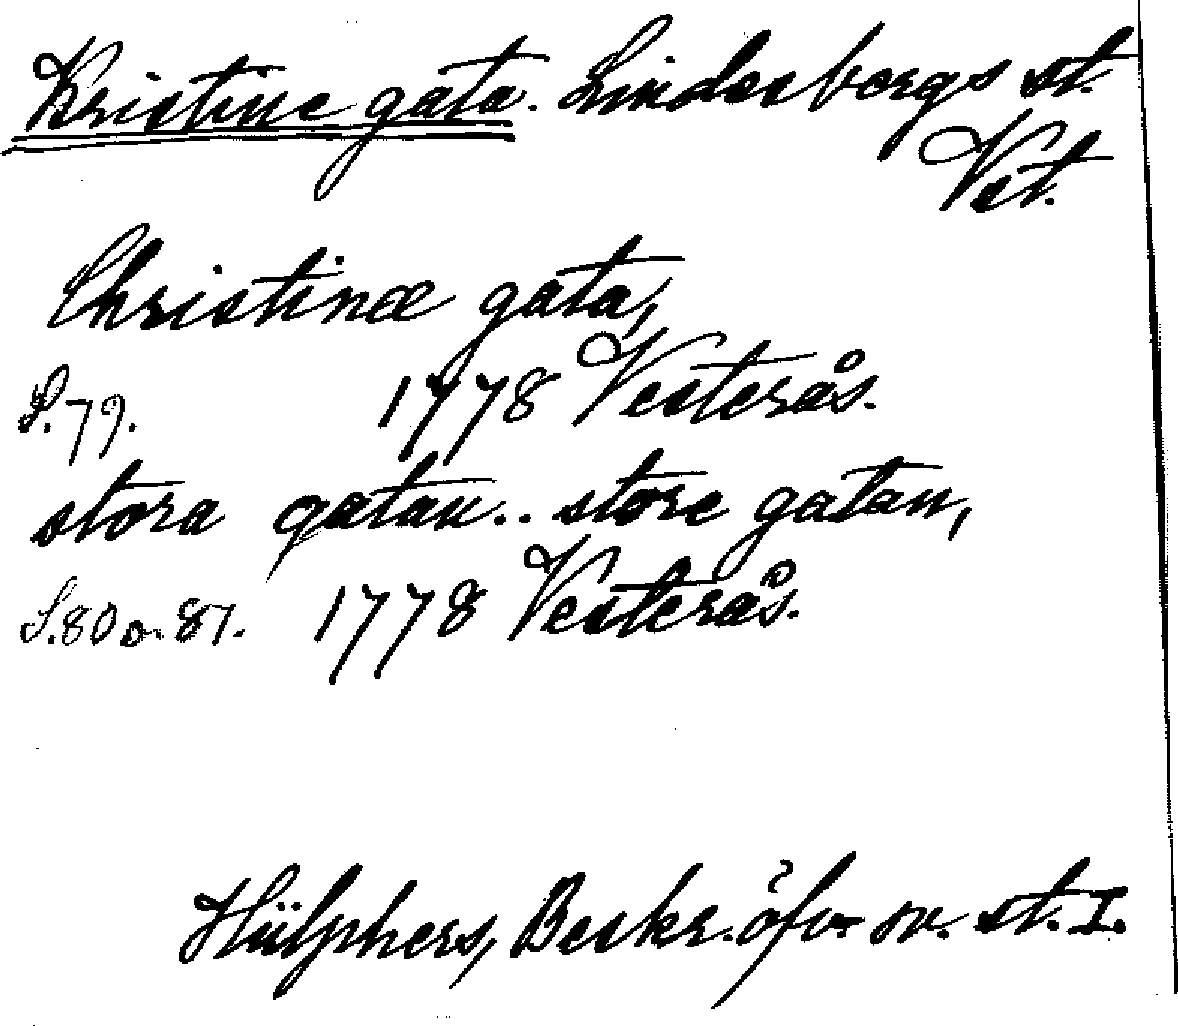 Kristine gata. Lindesbergs st.
Vst.
Christinæ gata,
S. 79. 1778 Vesterås.
stora gatan.. store gatan,
S. 80 o. 87. 1778 Vesterås.
Hülphers, Beskr. öfv. sv. st. I.